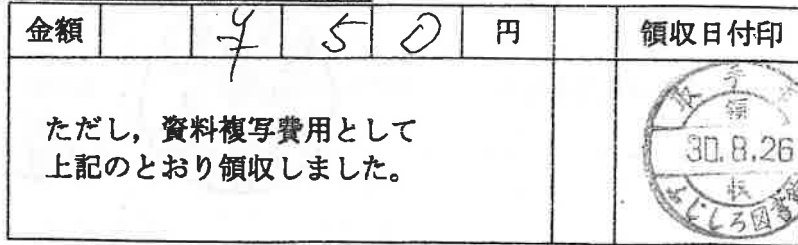 金額 ¥ 5 0 円 領収日付印
ただし，資料複写費用として
上記のとおり領収しました。
取手
領
30.8.26
収
ふじしろ図書館